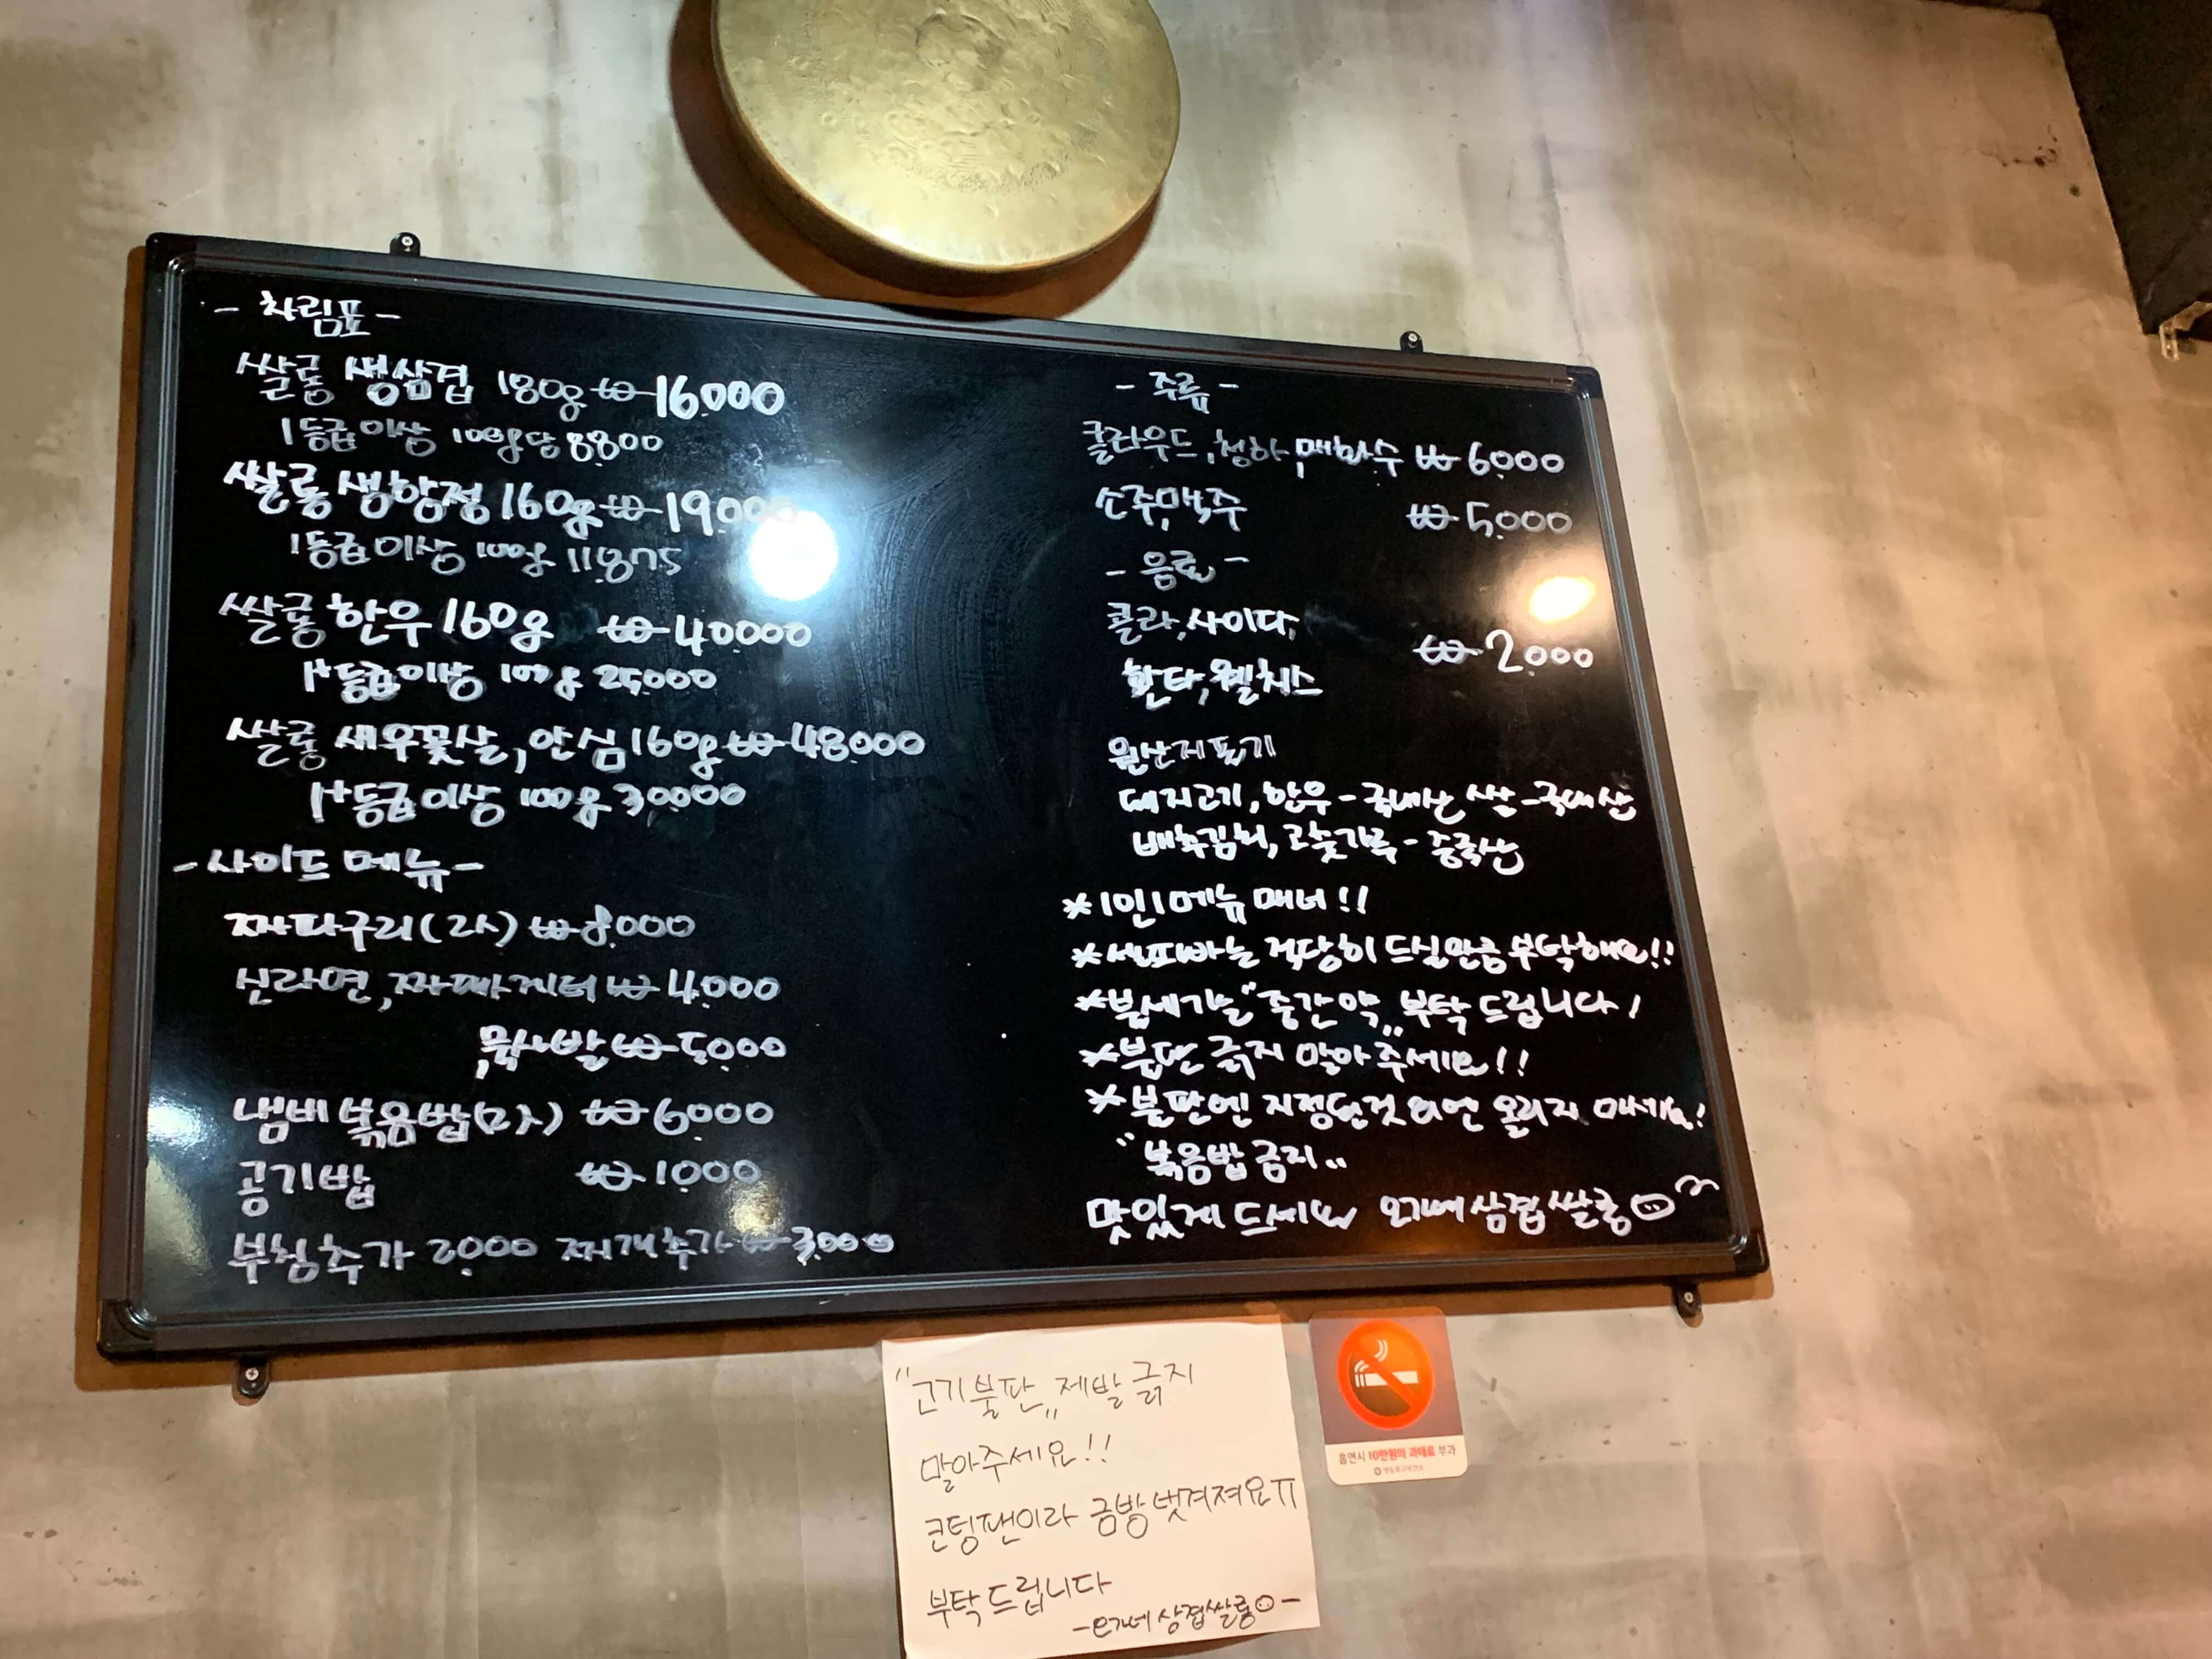 - 차림표 -
쌀롱 생삼겹 180g ₩ 16.000
1등급이상 100g당 8.800
쌀롱 생항정 160g ₩ 19.000
1등급이상 100g 11.875
쌀롱 한우 160g ₩ 40.000
1+등급이상 100g 25.000
쌀롱 새우꽃살, 안심 160g ₩ 48.000
1+등급이상 100g 30.000
- 사이드 메뉴 -
짜파구리(2人) ₩ 8.000
신라면, 짜파게티 ₩ 4.000
, 묵사발 ₩ 5.000
냄비 볶음밥(2人) ₩ 6.000
공기밥 ₩ 1.000
부침추가 2.000 찌개추가 ₩ 3.000
- 주류 -
클라우드, 청하, 매화수 ₩ 6.000
소주, 맥주 ₩ 5.000
- 음료 -
콜라, 사이다,
환타, 웰치스 ₩ 2.000
원산지표기
돼지고기, 한우 - 국내산 쌀 - 국내산
배추김치, 고춧가루 - 중국산
* 1인 1메뉴 매너!!
* 셀프빠는 적당히 드실만큼 부탁해요!!
* 불세기는 "중간약" 부탁드립니다!
* 불판 긁지 말아주세요!!
* 불판엔 지정된것 외엔 올리지 마세요!
"볶음밥 금지"
맛있게 드세요 삼겹쌀롱
"고기불판" 제발 긁지
말아주세요!!
코팅팬이라 금방 벗겨져요ㅠ
부탁드립니다
삼겹쌀롱 -
흡연시 10만원의 과태료 부과
영등포구보건소